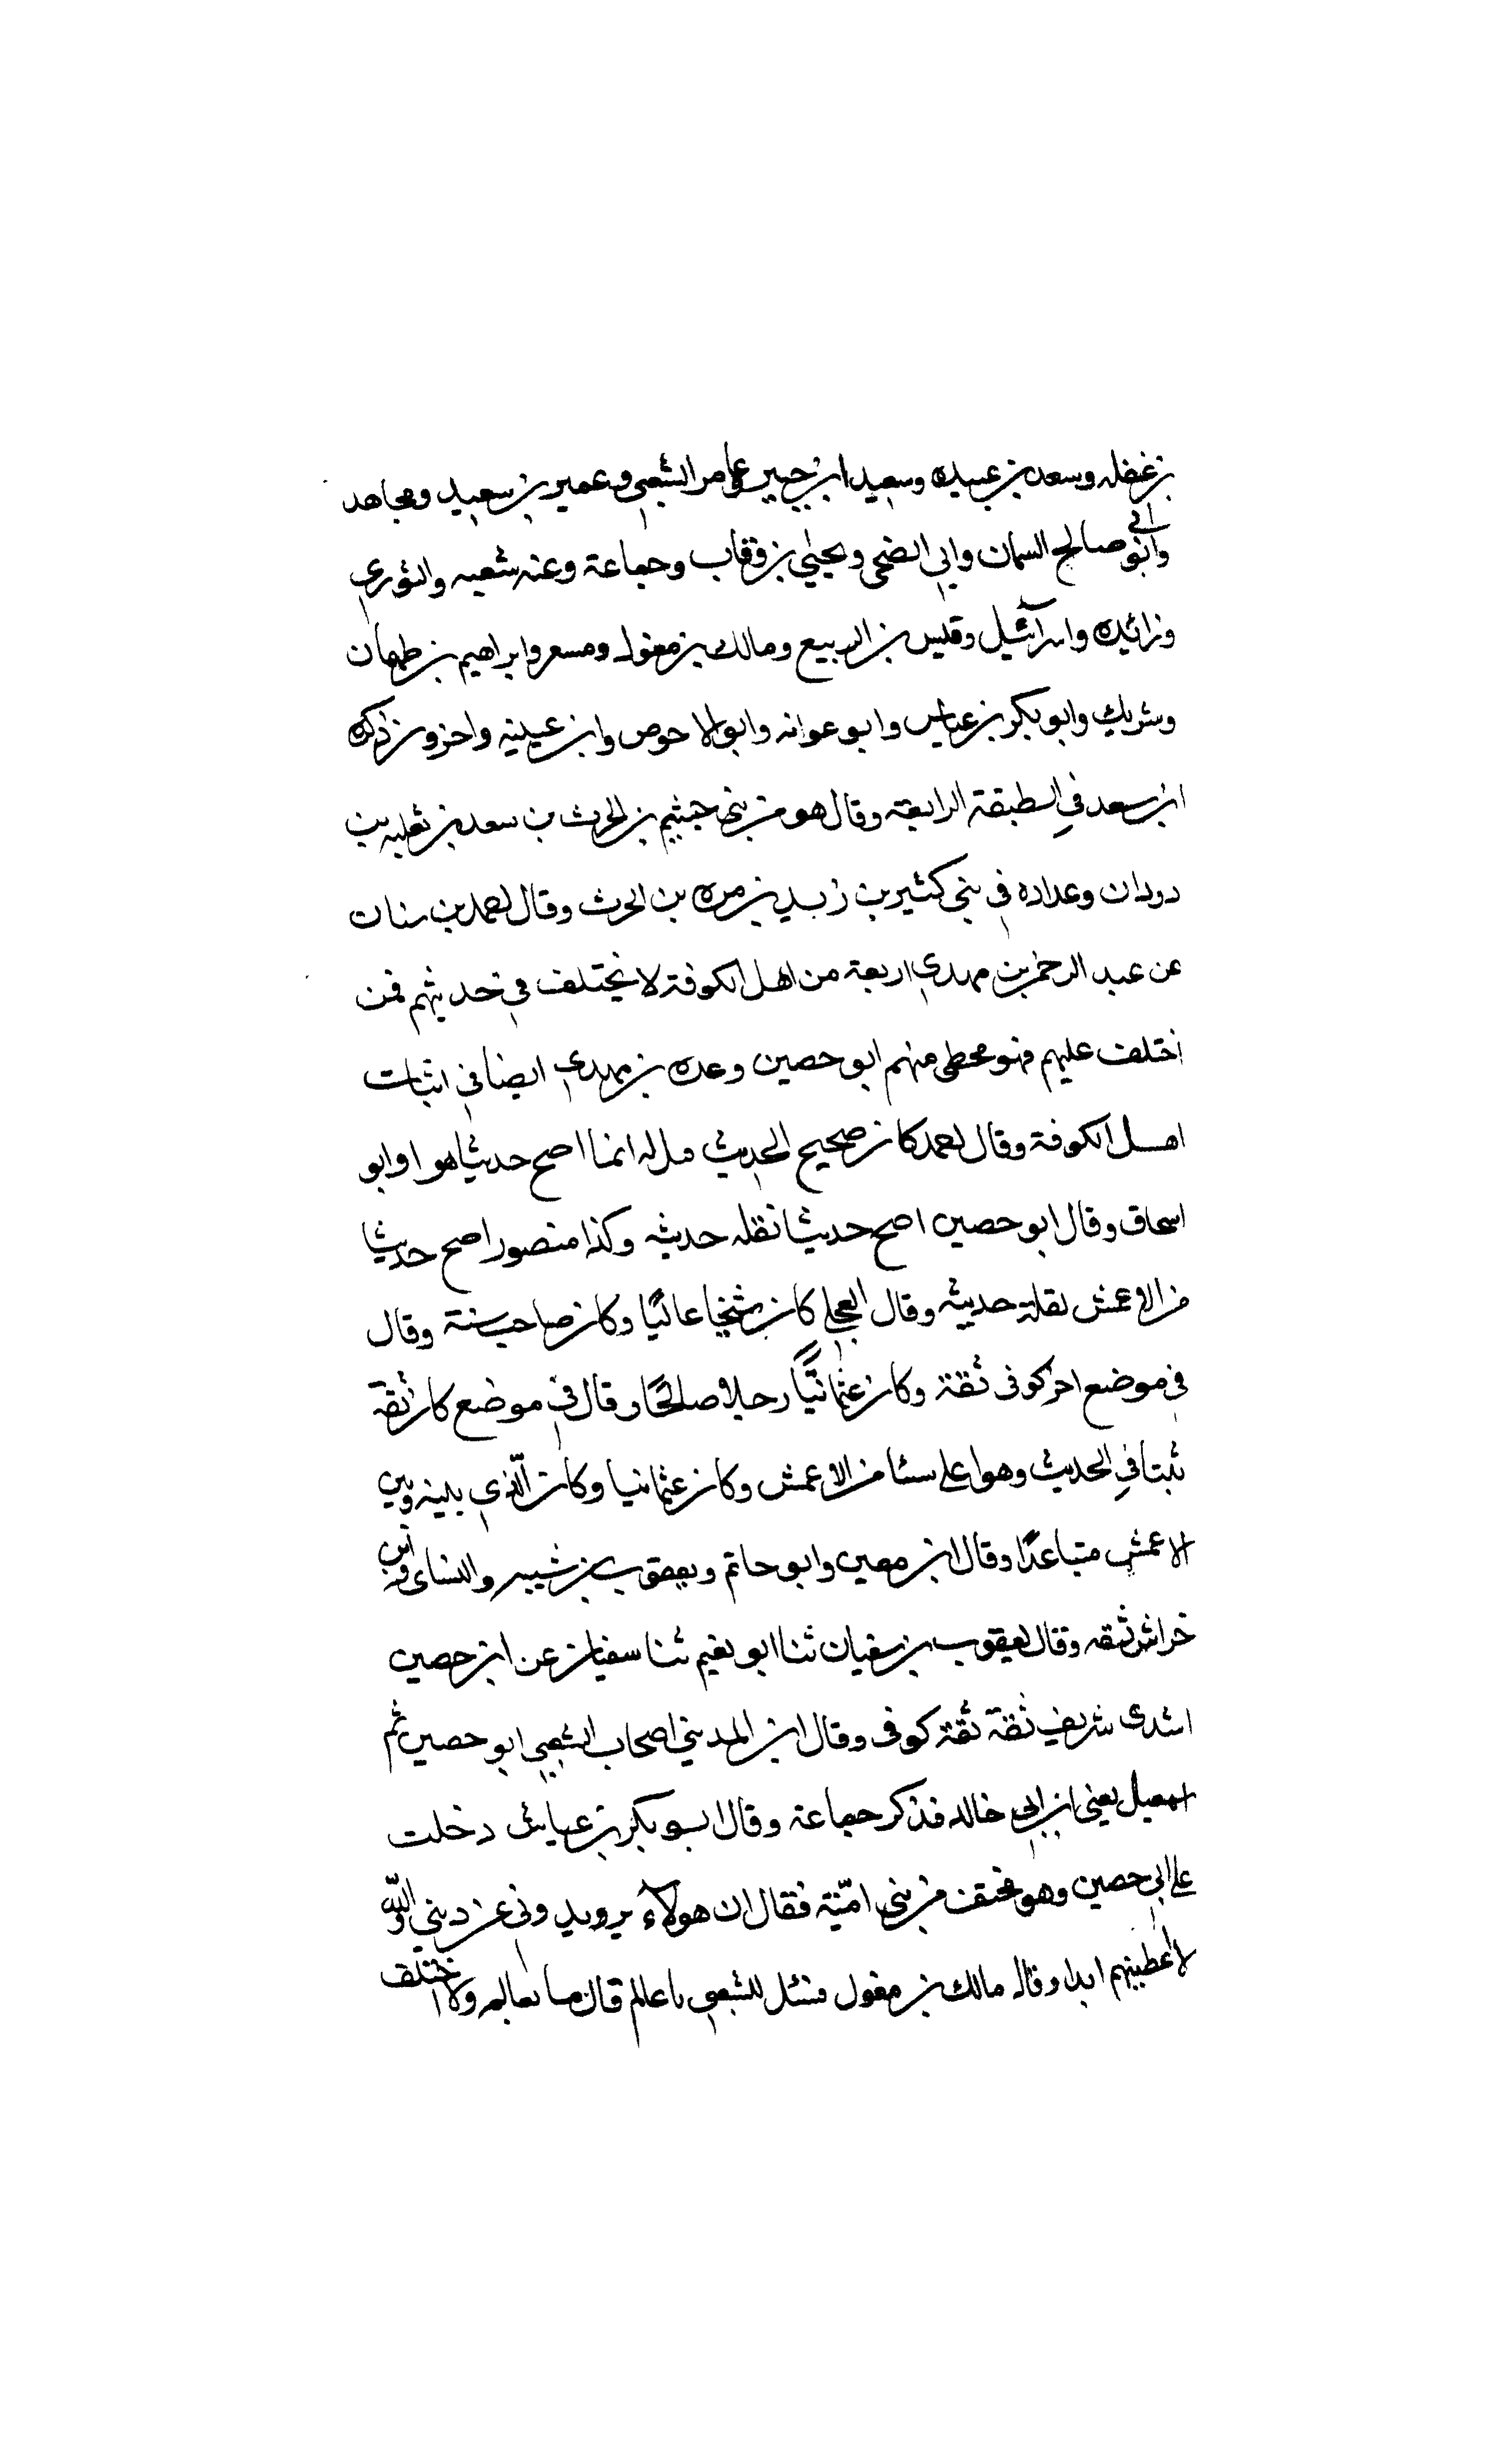 بن غفله وسعد بن عبيده وسعيد ابن جبير وعامر الشعبي وعمير بن سعيد ومجاهد
وابو ابي صالح السمان وابي الضحى ويحيى بن وثاب وجماعة وعنه شعبه والثوري
وزائده واسرآئيل وقيس بن الربيع ومالك بن مغول ومسعر وابراهيم بن طهمان
وشريك وابو بكر بن عياس وابو عوانه وابو الاحوص وابن عيينه واخرون ذكره
ابن سعد في الطبقة الرابعة وقال هو من بني جشيم بن الحرث بن سعد بن ثعلبه بن
دودان وعداده في بني كثير بن زيد بن مره بن الحرث وقال احمد بن سنان
عن عبد الرحمن بن مهدي اربعة من اهل الكوفة لا يختلف في حديثهم فمن
اختلف عليهم فهو مخطى منهم ابو حصين وعده بن مهدي ايضا في اثبات
اهل الكوفة وقال احمد كان صحيح الحديث قيل له ايما اصح حديثا هو او ابو
اسحاق وقال ابو حصين اصح حديثا نقله حديثه وكذا منصور اصح حديثا
من الاعمش لقلة حديثه وقال العجلي كان شيخا عاليًا وكان صاحب سنة وقال
في موضع اخر كوفى ثقة وكان عثمانيًّا رجلا صالحًا وقال في موضع كان ثقة
ثبتا في الحديث وهو اعلى سنا من الاعمش وكان عثمانيا وكان الّذي بينه وبين
الاعمش متباعدًا وقال ابن معين وابو حاتم ويعقوب بن شيبه والنساى وابن
خراش ثقه وقال يعقوب بن سفيان ثنا ابو نعيم ثنا سفيان عن ابن حصين
اسدى شريف ثقة ثقة كوفى وقال ابن المديني اصحاب الشعبي ابو حصين ثم
اسمعيل يعني ابن ابي خالد فذكر جماعة وقال ابو بكر بن عياش دخلت
على ابي حصين وهو مختف من بني اميّة فقال ان هولآء يريدوني عن ديني والله
لا اعطيهم ابدا وقال مالك بن مغول فسئل للشعبي يا عالم قال ما بعالم ولا اختلف